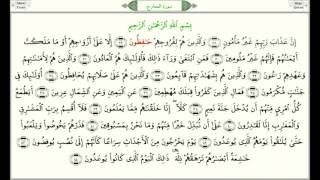 سورة المعارج
بِسْمِ ٱللَّهِ ٱلرَّحْمَٰنِ ٱلرَّحِيمِ
إِنَّ عَذَابَ رَبِّهِمْ غَيْرُ مَأْمُونٍ وَٱلَّذِينَ هُمْ لِفُرُوجِهِمْ حَٰفِظُونَ إِلَّا عَلَىٰٓ أَزْوَٰجِهِمْ أَوْ مَا مَلَكَتْ
أَيْمَٰنُهُمْ فَإِنَّهُمْ غَيْرُ مَلُومِينَ فَمَنِ ٱبْتَغَىٰ وَرَآءَ ذَٰلِكَ فَأُو۟لَٰٓئِكَ هُمُ ٱلْعَادُونَ وَٱلَّذِينَ هُمْ لِأَمَٰنَٰتِهِمْ
وَعَهْدِهِمْ رَٰعُونَ وَٱلَّذِينَ هُم بِشَهَٰدَٰتِهِمْ قَآئِمُونَ وَٱلَّذِينَ هُمْ عَلَىٰ صَلَاتِهِمْ يُحَافِظُونَ أُو۟لَٰٓئِكَ فِى
جَنَّٰتٍ مُّكْرَمُونَ فَمَالِ ٱلَّذِينَ كَفَرُوا۟ قِبَلَكَ مُهْطِعِينَ عَنِ ٱلْيَمِينِ وَعَنِ ٱلشِّمَالِ عِزِينَ أَيَطْمَعُ
كُلُّ ٱمْرِئٍ مِّنْهُمْ أَن يُدْخَلَ جَنَّةَ نَعِيمٍ كَلَّآ إِنَّا خَلَقْنَٰهُم مِّمَّا يَعْلَمُونَ فَلَآ أُقْسِمُ بِرَبِّ ٱلْمَشَٰرِقِ
وَٱلْمَغَٰرِبِ إِنَّا لَقَٰدِرُونَ عَلَىٰٓ أَن نُّبَدِّلَ خَيْرًا مِّنْهُمْ وَمَا نَحْنُ بِمَسْبُوقِينَ فَذَرْهُمْ يَخُوضُوا۟ وَيَلْعَبُوا۟
حَتَّىٰ يُلَٰقُوا۟ يَوْمَهُمُ ٱلَّذِى يُوعَدُونَ يَوْمَ يَخْرُجُونَ مِنَ ٱلْأَجْدَاثِ سِرَاعًا كَأَنَّهُمْ إِلَىٰ نُصُبٍ يُوفِضُونَ
خَٰشِعَةً أَبْصَٰرُهُمْ تَرْهَقُهُمْ ذِلَّةٌ ذَٰلِكَ ٱلْيَوْمُ ٱلَّذِى كَانُوا۟ يُوعَدُونَ